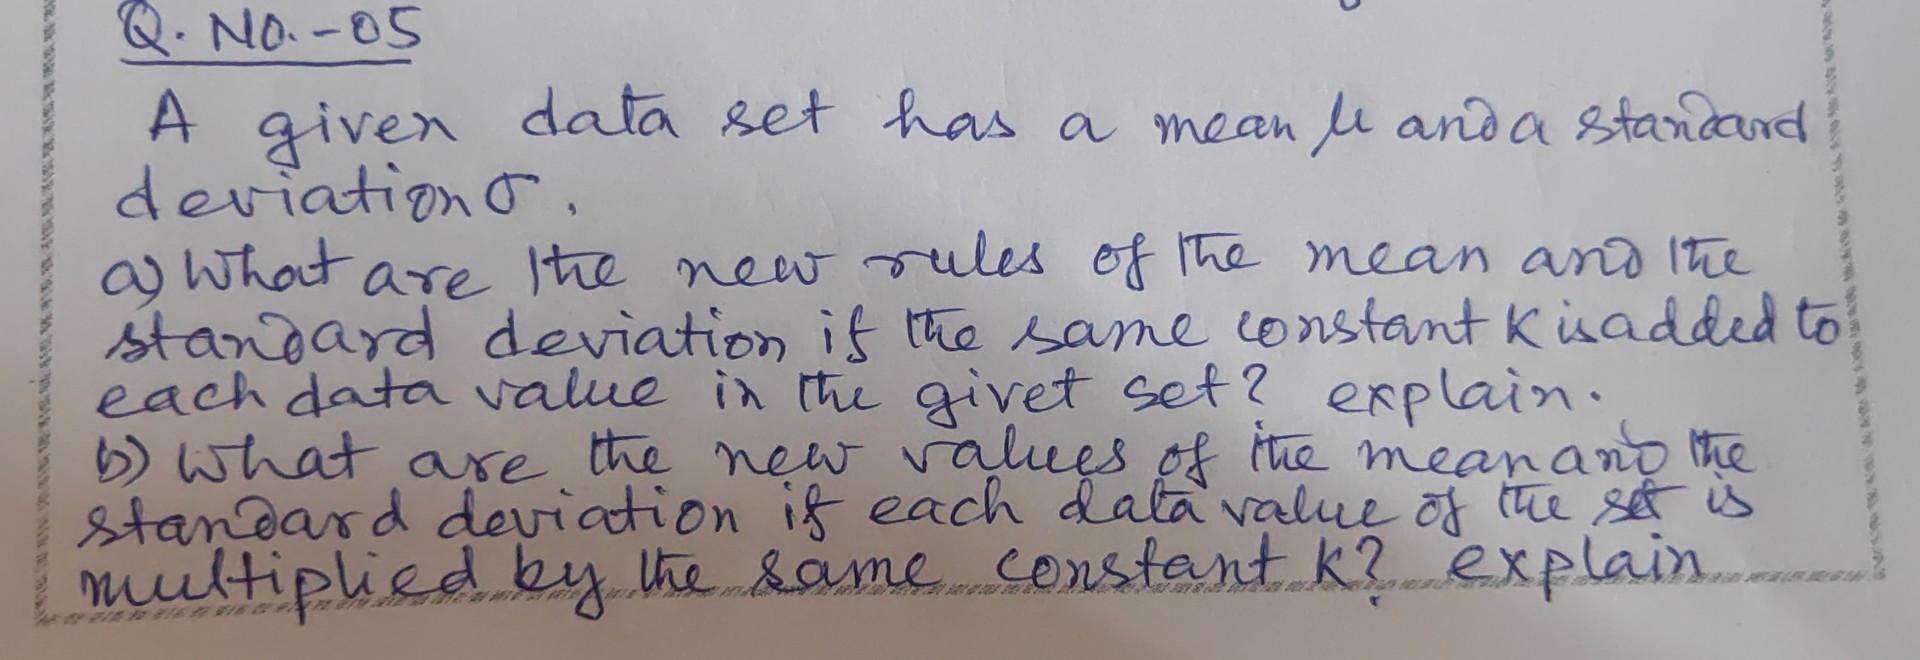 Q. No.-05
A given data set has a mean μ and a standard
deviation σ.
a) What are the new rules of the mean and the
standard deviation if the same constant K is added to
each data value in the givet set? explain.
b) What are the new values of the mean and the
standard deviation if each data value of the set is
multiplied by the same constant K? explain